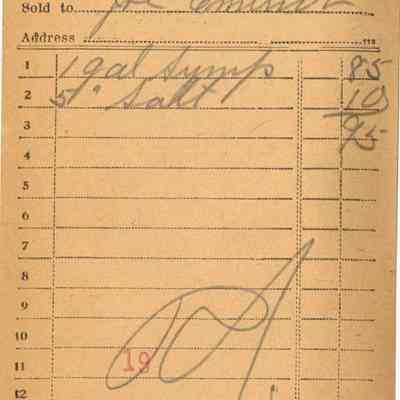 Sold to Joe
Address
1 1 gal Syrup 85
2 5 " Salt 10
3 95
4
5
6
7
8
9
10
11 19
12